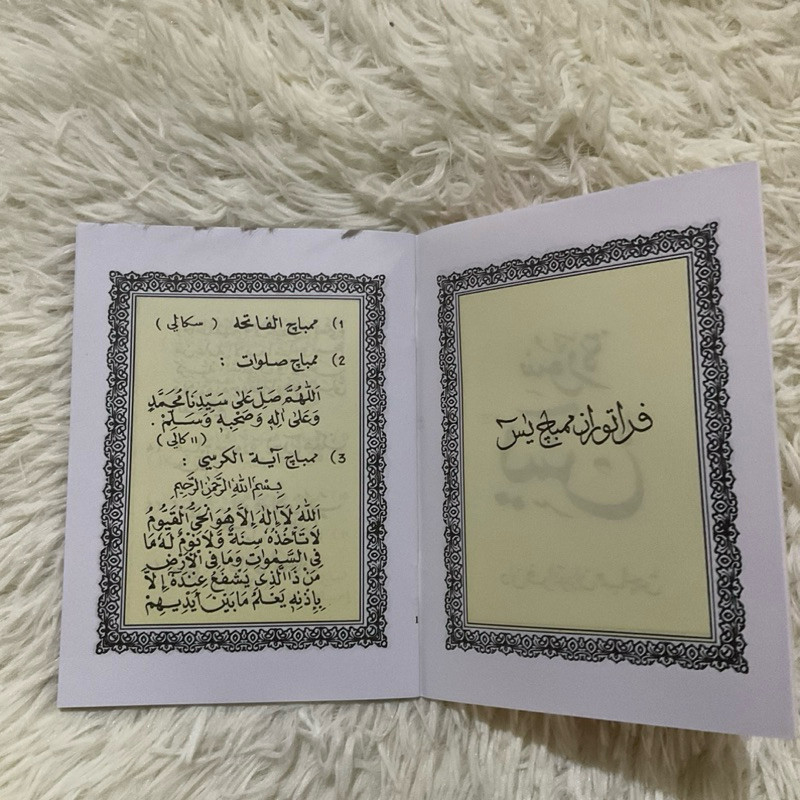 فراتوران ممباچ يس
1) ممباچ الفاتحه ( سكالي )
2) ممباچ صلوات :
اَللّٰهُمَّ صَلِّ عَلٰى سَيِّدِنَا مُحَمَّدٍ
وَعَلٰى اٰلِهٖ وَصَحْبِهٖ وَسَلَّمْ .
( ١١ كالي )
3) ممباچ آية الكرسي :
بِسْمِ اللهِ الرَّحْمٰنِ الرَّحِيْمِ
اَللهُ لَآ اِلٰهَ اِلَّا هُوَ الْحَيُّ الْقَيُّوْمُ
لَا تَأْخُذُهٗ سِنَةٌ وَّلَا نَوْمٌ لَهٗ مَا
فِى السَّمٰوَاتِ وَمَا فِى الْاَرْضِ
مَنْ ذَا الَّذِيْ يَشْفَعُ عِنْدَهٗٓ اِلَّا
بِاِذْنِهٖ يَعْلَمُ مَا بَيْنَ اَيْدِيْهِمْ